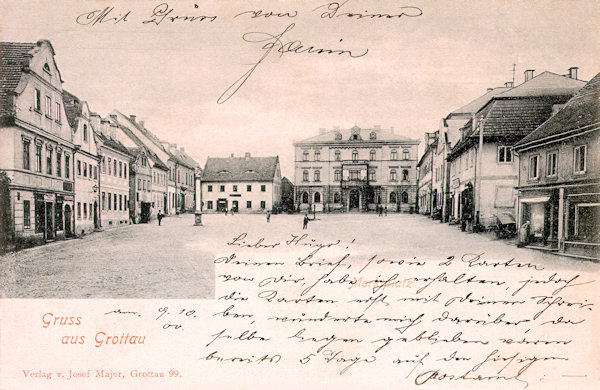 Mit Gruss von Deiner
Lieber Hugo!
Deinen Brief, sowie 2 Karten
von Dir, habe ich erhalten, jedoch
Marktplatz
die Karten erst, mit Deinem Schrei-
ben wunderte mich darüber da
selbe liegen geblieben waren
bereits 5 Tage auf dem hiesigen
Postamt
Gruss
aus Grottau
am 9. 10.
00.
Verlag v. Josef Major, Grottau 99.